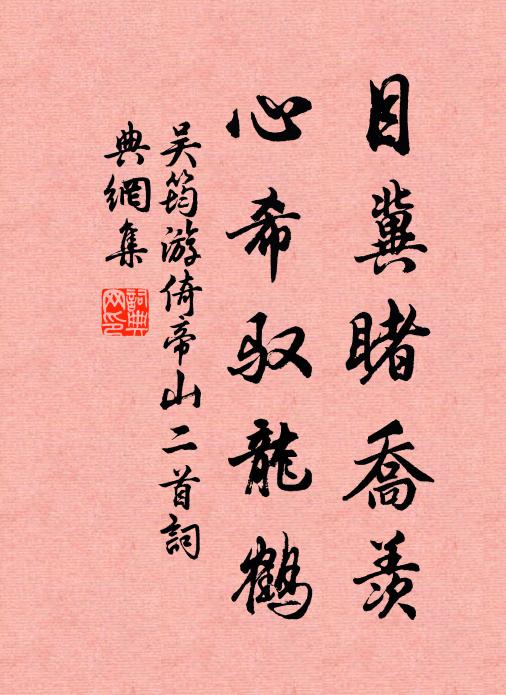 目冀睹喬羨
心希馭龍鶴
吴筠游倚帝山二首詞
典網集
詞典
网印